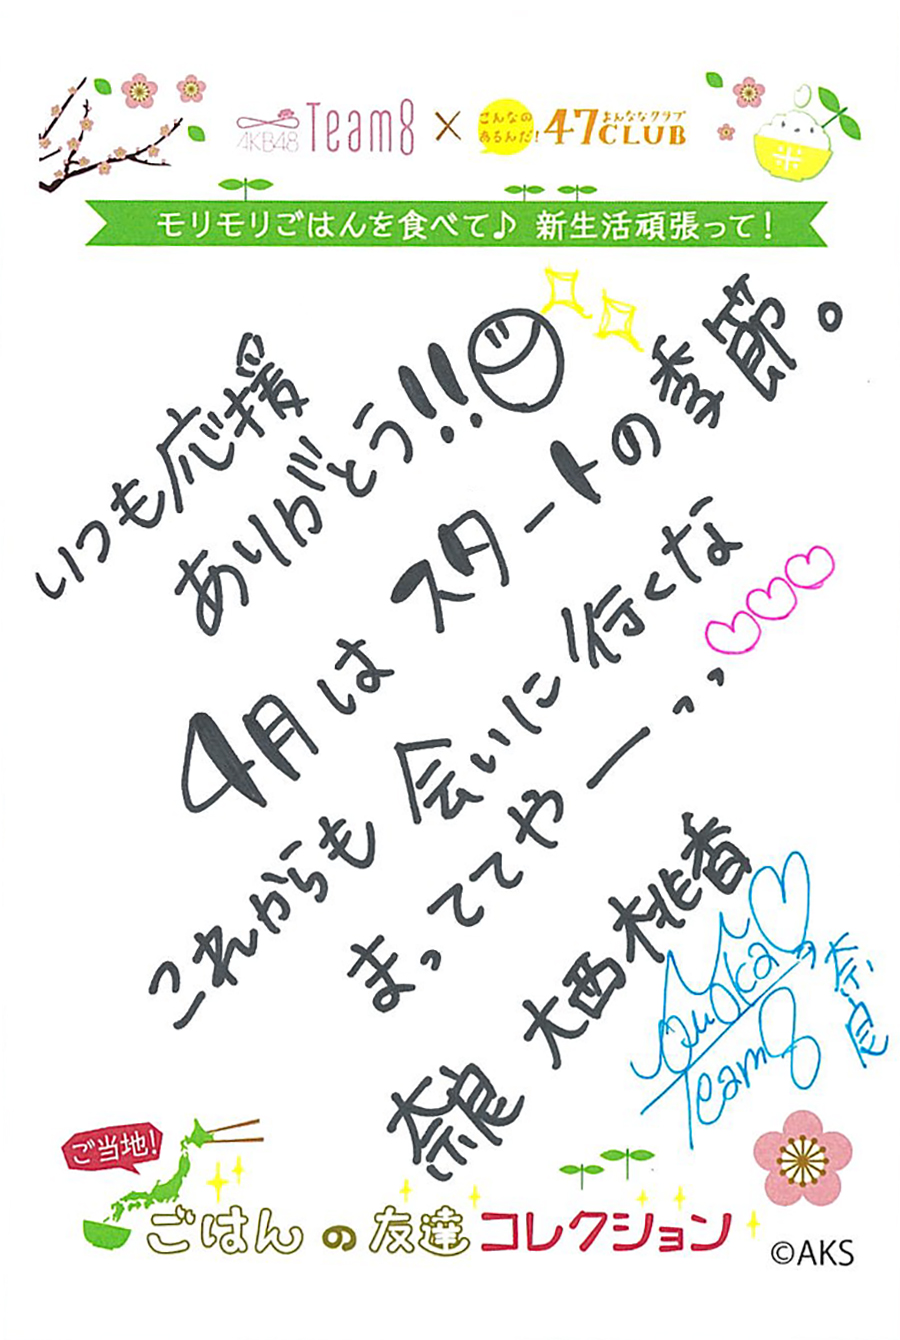 AKB48 Team8 × こんなのあるんだ! 47CLUB よんななクラブ
米
モリモリごはんを食べて♪ 新生活頑張って!
いつも応援
ありがとう!!
4月はスタートの季節。
これからも会いに行くな
まっててやーっっ♡♡♡
奈良 大西桃香
Team8
奈良
ご当地!
ごはんの友達コレクション
©AKS